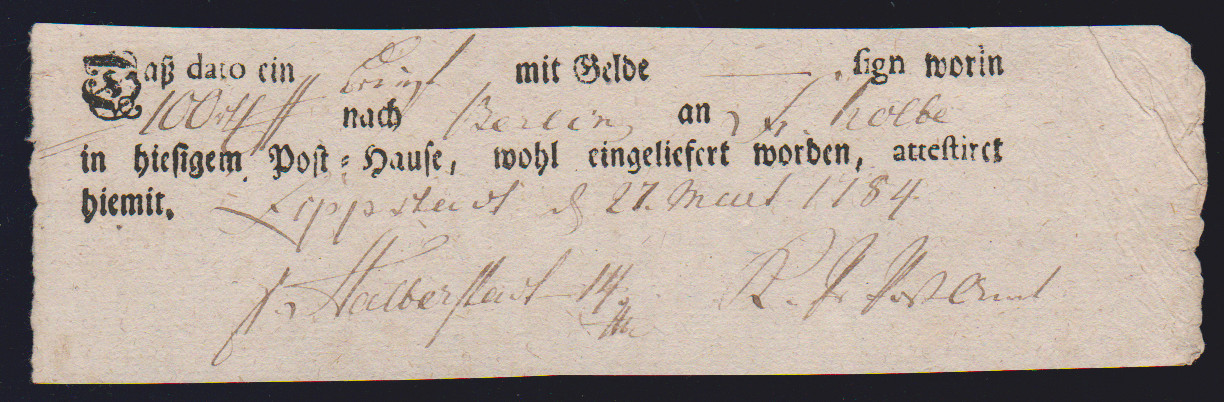 Daß dato ein Brief mit Gelde sign worin
100 rth nach Berlin an H. Kolbe
in hiesigem Post-Hause, wohl eingeliefert worden, attestiret
hiemit. Lippstadt d 27. Mart 1784
Halberstadt 14 K. P. Post Amt